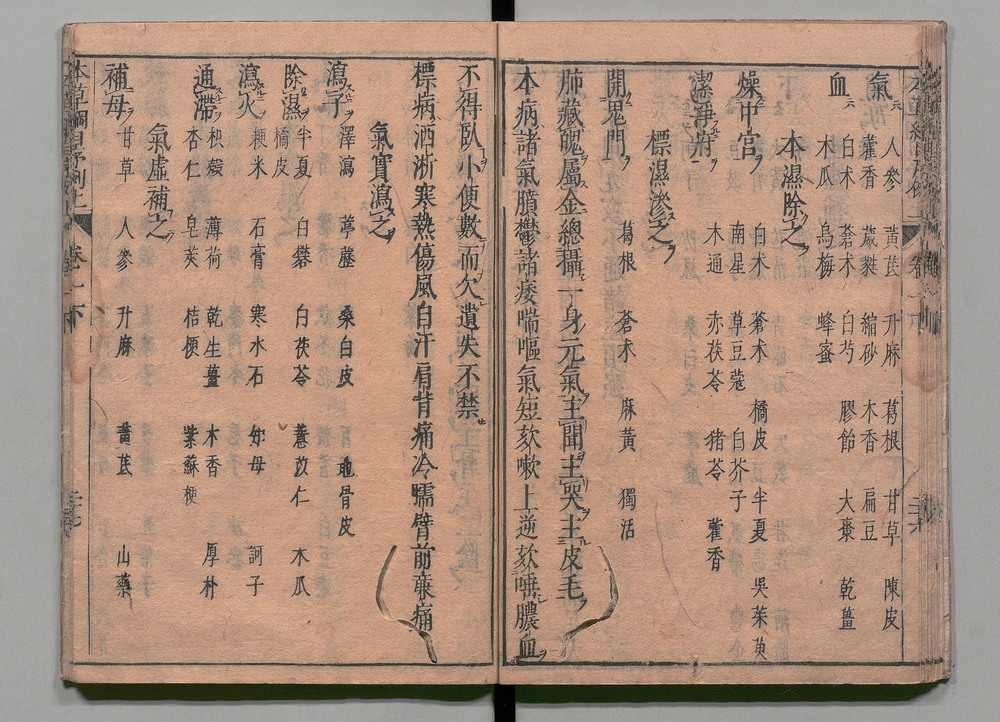 氣 人參 黃芪 升麻 葛根 甘草 陳皮
藿香 葳蕤 縮砂 木香 扁豆
血 白朮 蒼朮 白芍 膠飴 大棗 乾薑
木瓜 烏梅 蜂蜜
本濕除之
燥中宮 白朮 蒼朮 橘皮 半夏 吳茱萸
南星 草豆蔻 白芥子
潔淨府 木通 赤茯苓 猪苓 藿香
標濕滲之
開鬼門 葛根 蒼朮 麻黃 獨活
肺藏魄屬金總攝一身元氣主聞主哭主皮毛
本病諸氣膹鬱諸痿喘嘔氣短欬嗽上逆欬唾膿血
不得臥小便數而欠遺失不禁
標病洒淅寒熱傷風自汗肩背痛冷臑臂前廉痛
氣實瀉之
瀉子 澤瀉 葶藶 桑白皮 地骨皮
除濕 半夏 白礬 白茯苓 薏苡仁 木瓜
橘皮
瀉火 粳米 石膏 寒水石 知母 訶子
通滯 枳殼 薄荷 乾生薑 木香 厚朴
杏仁 皂莢 桔梗 紫蘇梗
氣虛補之
補母 甘草 人參 升麻 黃芪 山藥
本草綱目序例上 卷一下 二十七